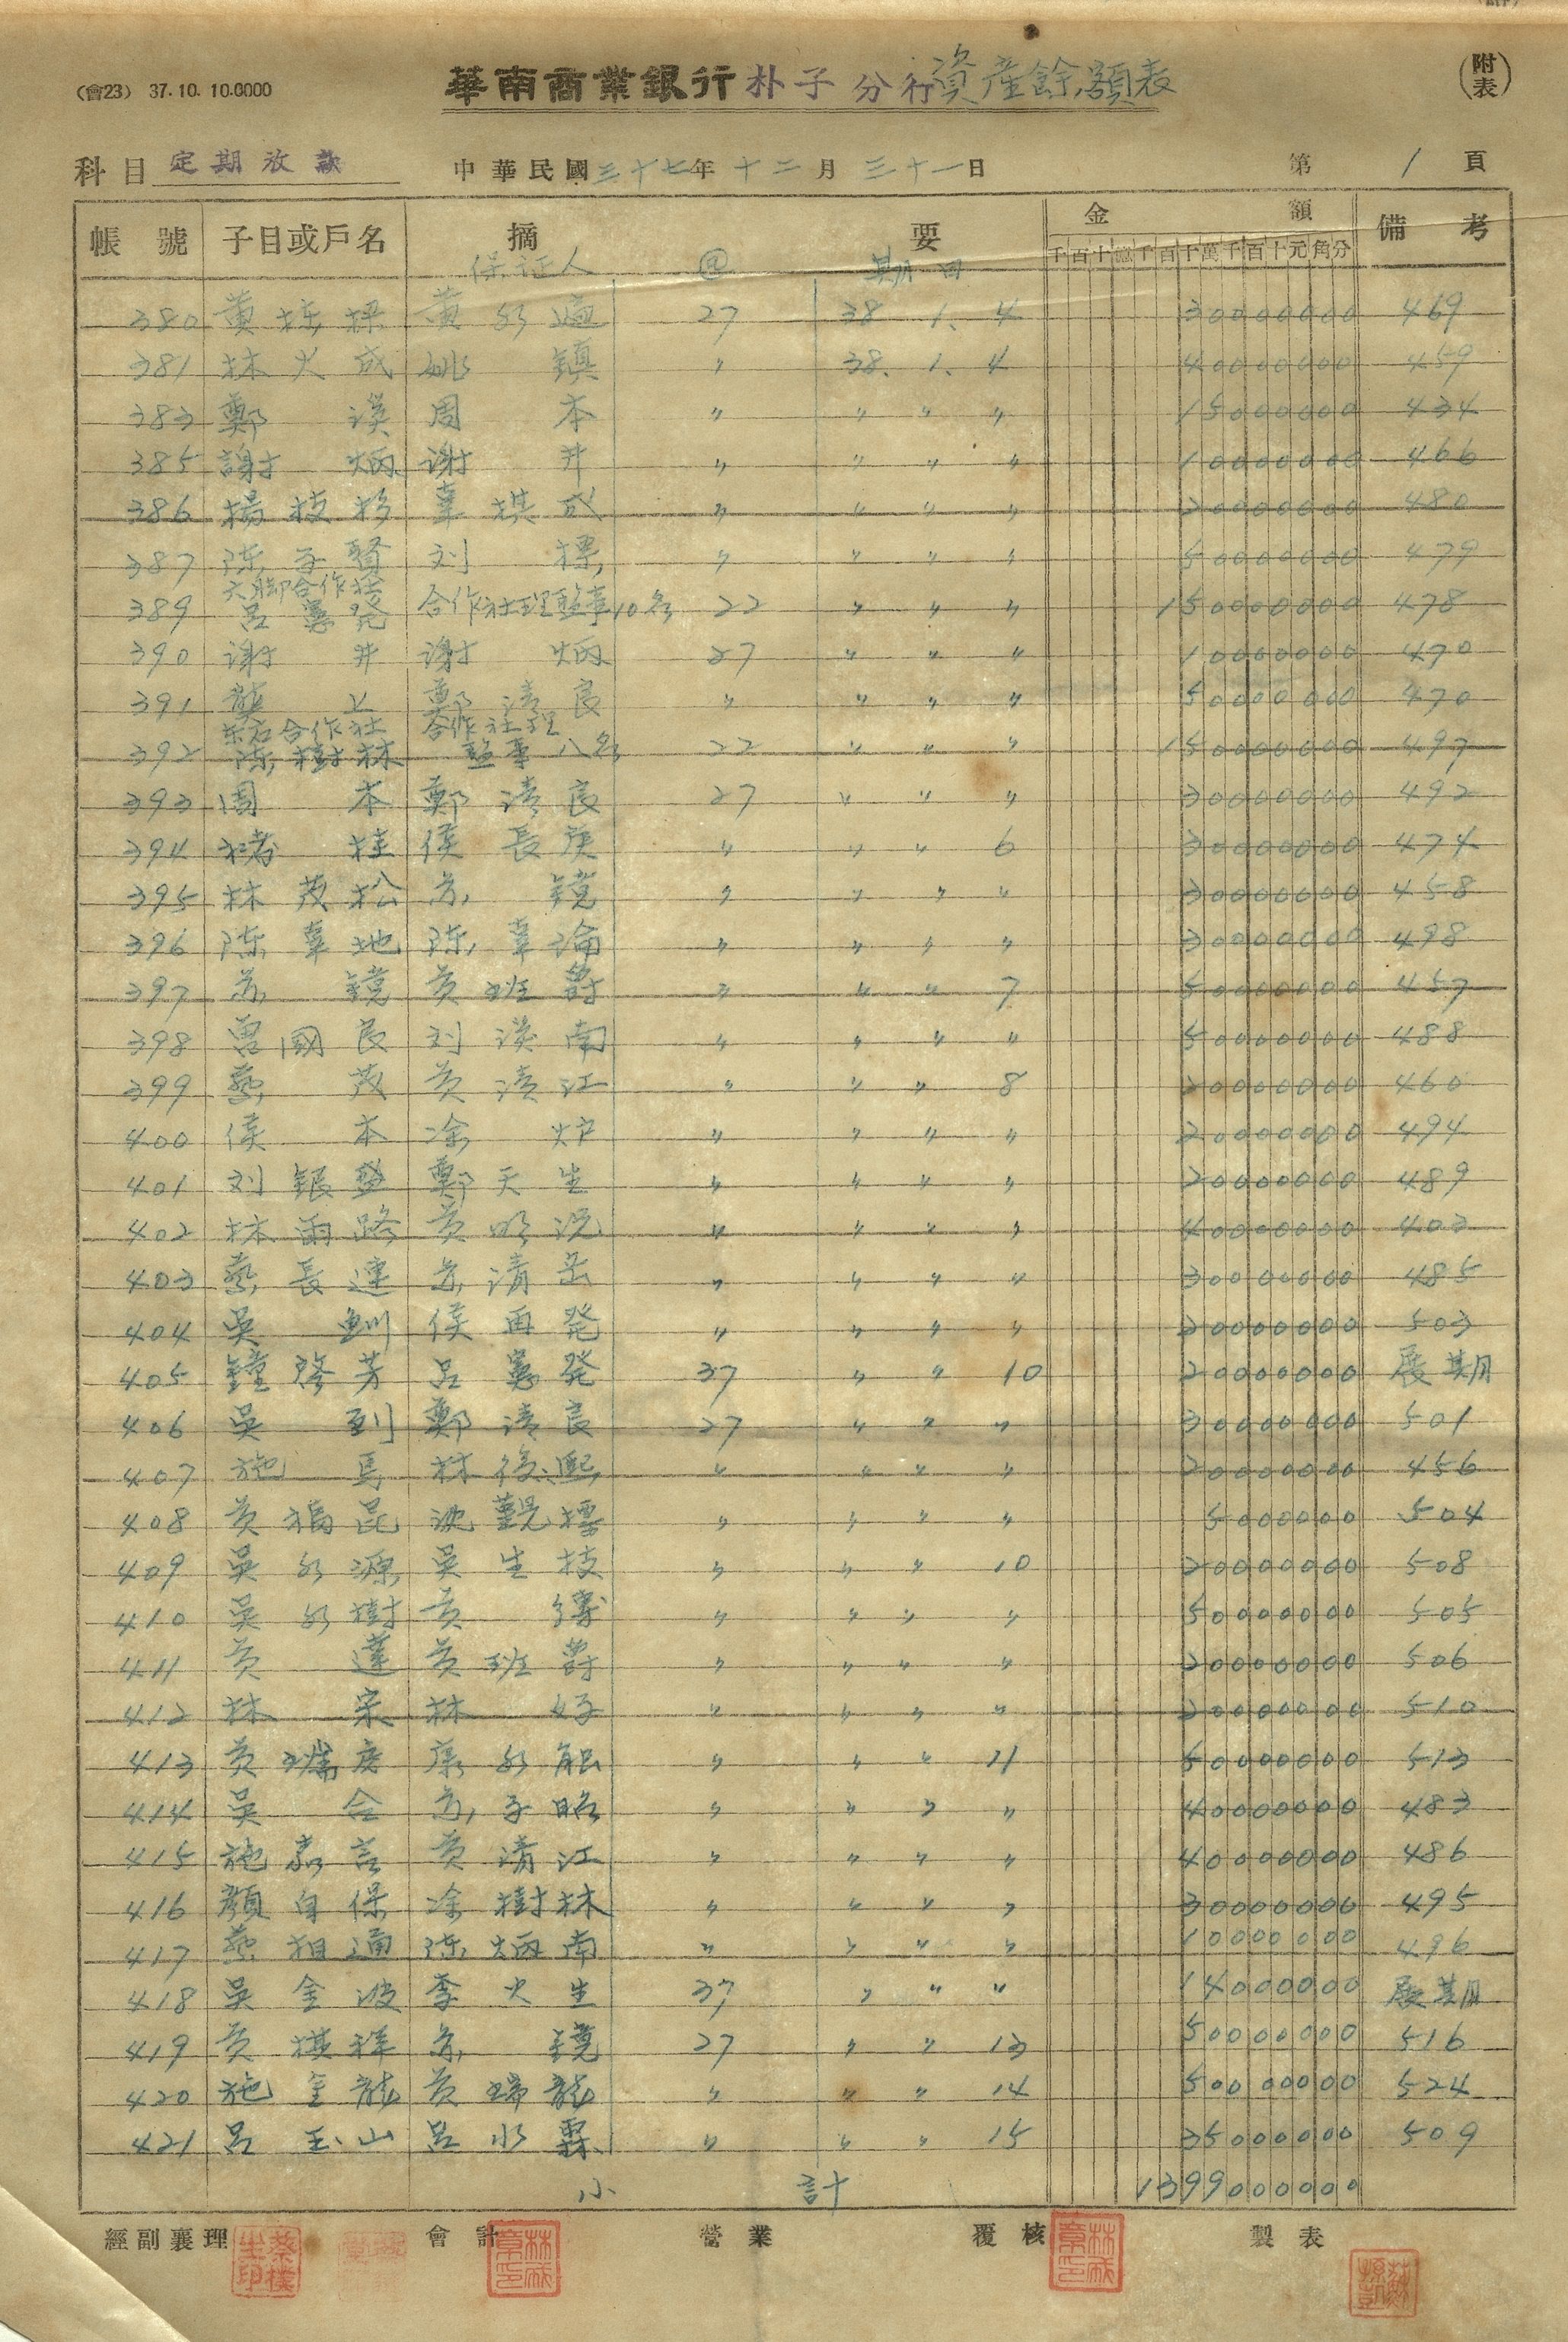 (會23) 37.10. 10.0000
華南商業銀行朴子分行資產餘額表
(附表)
科目 定期放款 中華民國三十七年十二月三十一日 第1頁
帳號 子目或戶名 摘要 金額 備考
千百十億千百十萬千百十元角分
保証人 @ 期日
380 黃棟樑 黃 27 38 1. 4 30000000 469
381 林火成 姚鎮 〃 38. 1. 4 40000000 459
383 鄭漢 周本 〃 〃 〃 〃 15000000 434
385 謝炳 謝井 〃 〃 〃 〃 10000000 466
386 楊枝 章棋成 〃 〃 〃 〃 20000000 480
387 陳子賢 刘標 〃 〃 〃 〃 50000000 479
六脚合作社
389 呂憲発 合作社理監事10名 22 〃 〃 〃 150000000 478
390 謝井 謝炳 27 〃 〃 〃 10000000 470
391 龔 鄭清良 〃 〃 〃 〃 50000000 470
東石合作社 合作社理
392 陳樹林 監事八名 22 〃 〃 〃 150000000 497
393 周本 鄭清良 27 〃 〃 〃 30000000 492
394 桂 侯長庚 〃 〃 〃 6 30000000 474
395 林茂松 蘇鏡 〃 〃 〃 〃 30000000 458
396 陳章地 陳章論 〃 〃 〃 〃 30000000 498
397 蘇鏡 黃班爵 〃 〃 〃 7 50000000 457
398 曾國良 刘漢南 〃 〃 〃 〃 50000000 488
399 蔡茂 黃清江 〃 〃 〃 8 20000000 460
400 侯本 涂炉 〃 〃 〃 〃 20000000 494
401 刘銀盤 鄭天生 〃 〃 〃 〃 20000000 489
402 林雨路 黃明 〃 〃 〃 〃 40000000 403
403 蔡長連 蘇清岳 〃 〃 〃 〃 30000000 485
404 吳 侯再発 〃 〃 〃 〃 20000000 503
405 鐘啓芳 呂憲発 37 〃 〃 10 20000000 展期
406 吳到 鄭清良 27 〃 〃 〃 30000000 501
407 施馬 林後熙 〃 〃 〃 〃 20000000 456
408 黃福昆 沈觀標 〃 〃 〃 〃 5000000 504
409 吳水源 吳生技 〃 〃 〃 10 20000000 508
410 吳水樹 黃 〃 〃 〃 〃 50000000 505
411 黃蓮 黃班爵 〃 〃 〃 〃 20000000 506
412 林宋 林好 〃 〃 〃 〃 20000000 510
413 黃瑞庚 康水能 〃 〃 〃 11 50000000 513
414 吳合 蘇子昭 〃 〃 〃 〃 40000000 483
415 施嘉言 黃清江 〃 〃 〃 〃 40000000 486
416 顏自保 涂樹林 〃 〃 〃 〃 30000000 495
417 蔡相通 陳炳南 〃 〃 〃 〃 10000000 496
418 吳金波 李火生 37 〃 〃 〃 14000000 展期
419 黃棋祥 蘇鏡 27 〃 〃 13 50000000 516
420 施金龍 黃瑞龍 〃 〃 〃 14 50000000 524
421 呂玉山 呂水霖 〃 〃 〃 15 35000000 509
小計 1399000000
經副襄理 會計 營業 覆核 製表